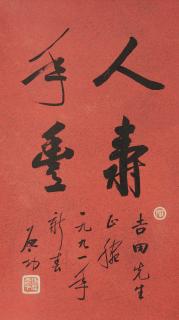 人壽
年豐
吉田先生
正腕
一九九一年
新春
啟功